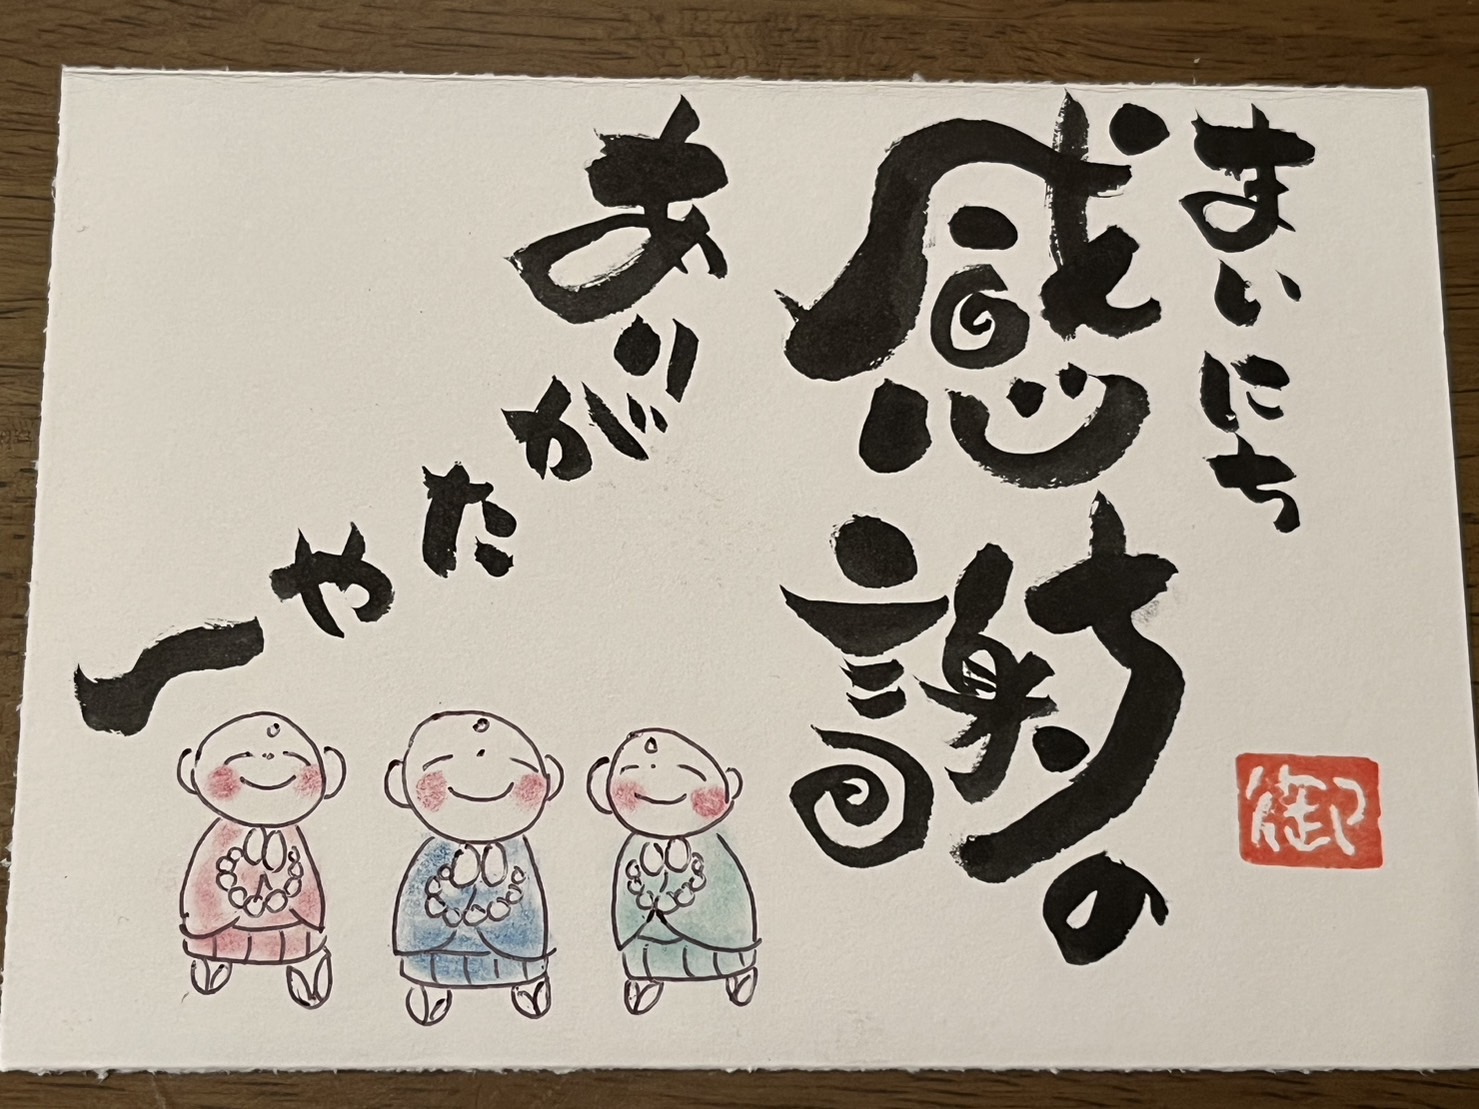 まいにち
感謝の
ありがたやー
御